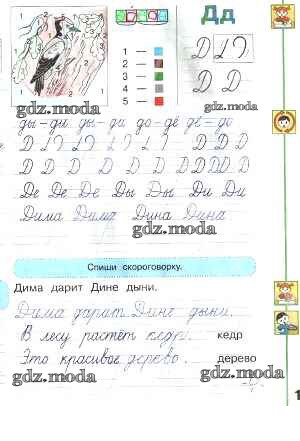 Дд
1 2 2 1
1 —
2 —
3 —
4 —
5 —
Д
Д Д
gdz.moda
gdz.moda
ды - ди ды - ди до - дё дё - до
Д Д Д Д Д Д Д Д
gdz.moda
Д Д Д Д Д Д Д Д Д Д
Де Де Де Ды Ды Ди Ди
Дима Дима Дина Дина
gdz.moda
Спиши скороговорку.
Дима дарит Дине дыни.
Дима дарит Дине дыни.
В лесу растёт кедр. кедр
Это красивое дерево. дерево
gdz.moda gdz.moda
1